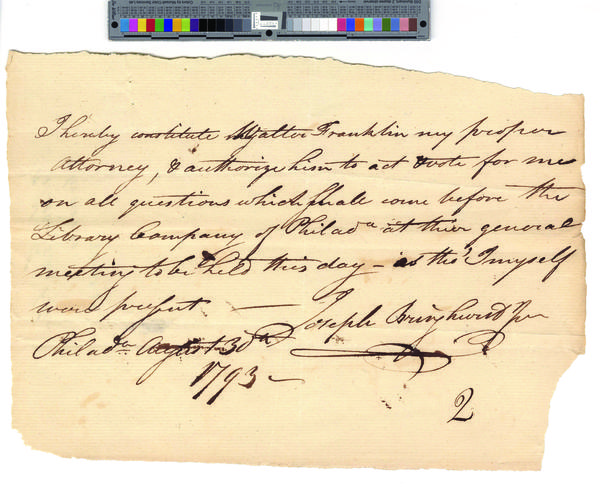 I hereby constitute Walter Franklin my proper
Attorney, & authorize him to act & vote for me
on all questions which shall come before the
Library Company of Philada at thier general
meeting to be held this day – as tho' I myself
were present — Joseph Bringhurst Jun
Philada August 30th
1793 –
2